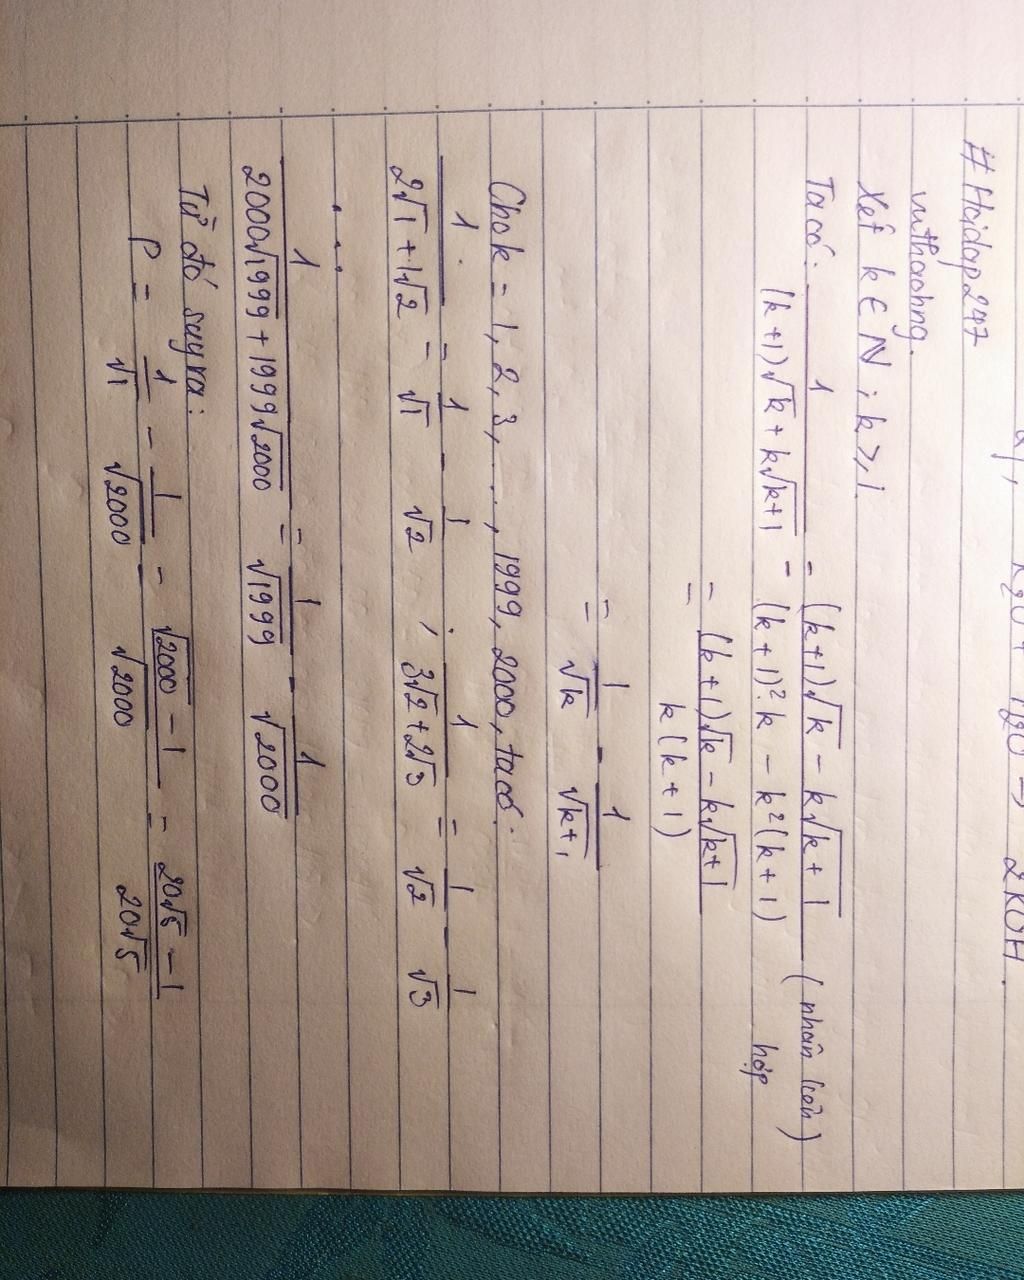 K2O + H2O → 2KOH.
# Hoidap247
vuthaohng.
Xét k ∈ N ; k ≥ 1
Ta có: 1/((k+1)√k + k√(k+1)) = ((k+1)√k - k√(k+1))/((k+1)².k - k²(k+1)) (nhân liên hợp)
= ((k+1)√k - k√(k+1))/(k(k+1))
= 1/√k - 1/√(k+1)
Cho k = 1, 2, 3, ..., 1999, 2000, ta có:
1/(2√1 + 1√2) = 1/√1 - 1/√2 ; 1/(3√2 + 2√3) = 1/√2 - 1/√3
...
1/(2000√1999 + 1999√2000) = 1/√1999 - 1/√2000
Từ đó suy ra:
P = 1/√1 - 1/√2000 = (√2000 - 1)/√2000 = (20√5 - 1)/(20√5)